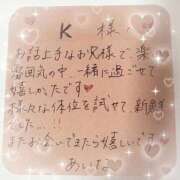 K 様
お話上手なお兄様で、楽
雰囲気の中、一緒に過ごせて
嬉しかたです♥
様々な体位を試せて、新鮮
でした...!!
またお会いできたら嬉しいです
あいな